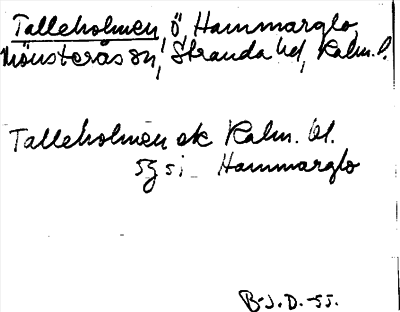 Talleholmen, ö, Hammarglo,
Mönsterås sn, Stranda hd, Kalm. l.
Talleholmen ek Kalm. bl.
5g si Hammarglo
B-J.D.-55.